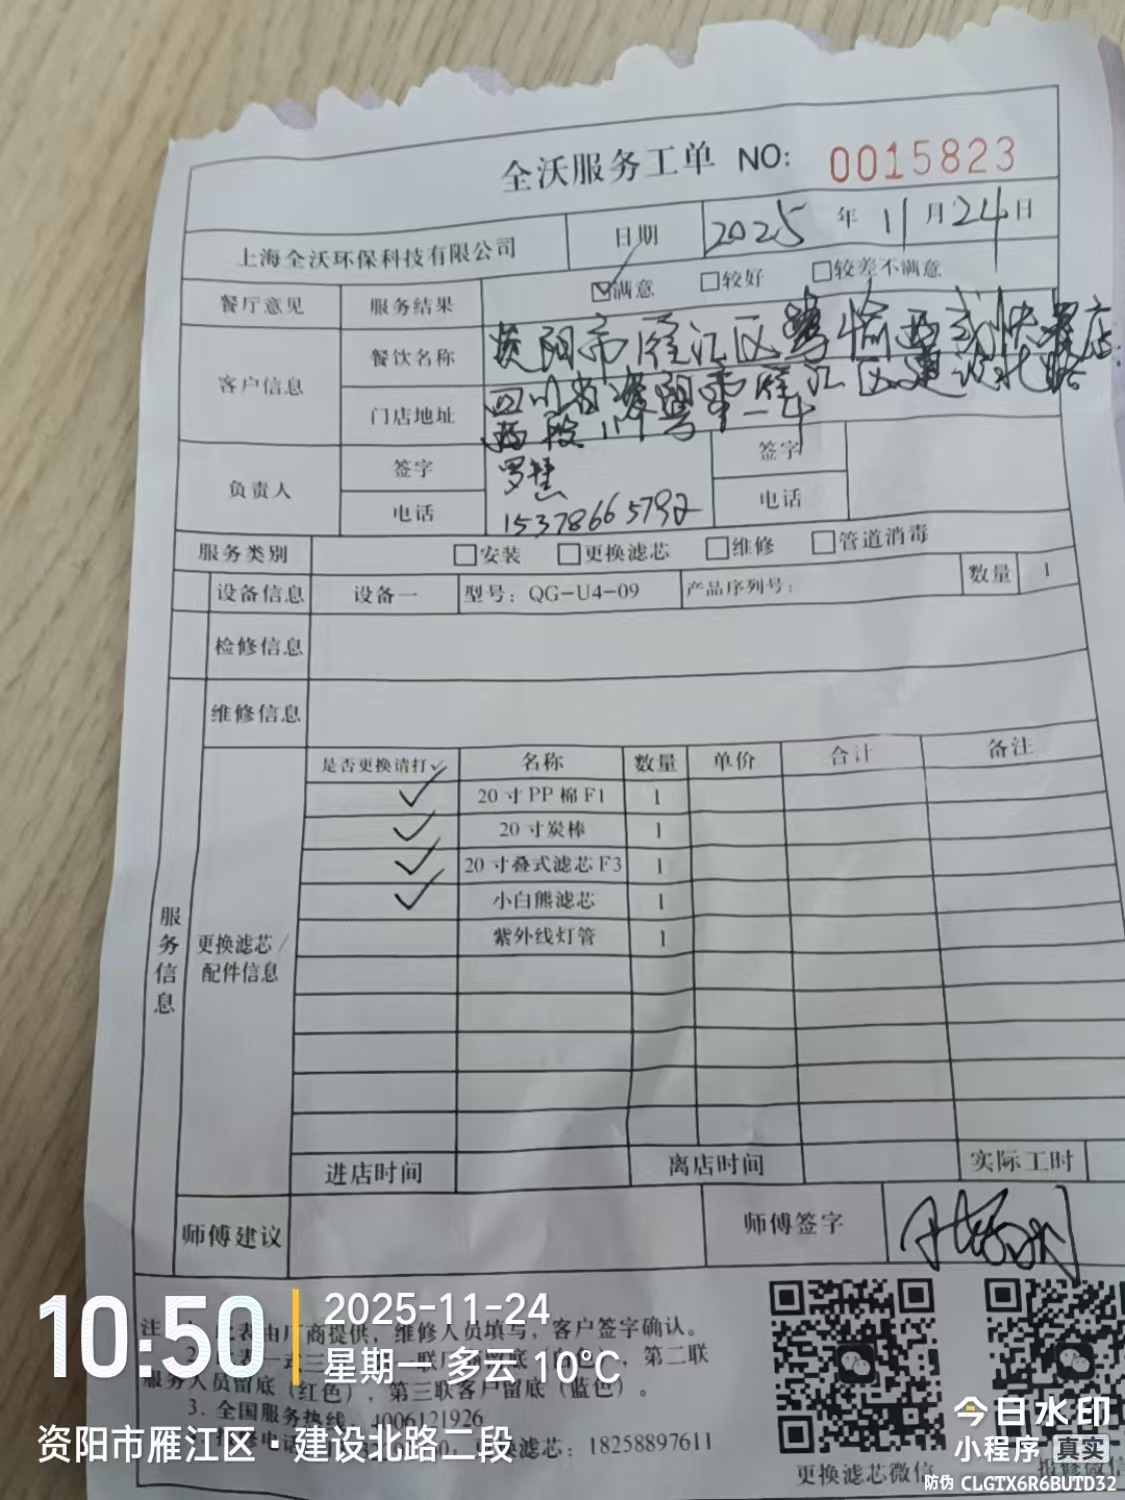 全沃服务工单 NO: 0015823
上海全沃环保科技有限公司 日期 2025 年 11 月 24 日
餐厅意见 服务结果 ☑满意 □较好 □较差不满意
客户信息 餐饮名称 资阳市雁江区 愉西式快餐店
门店地址 四川省资阳市雁江区建设北路
西段
负责人 签字 罗 签字
电话 15378665792 电话
服务类别 □安装 □更换滤芯 □维修 □管道消毒
设备信息 设备一 型号：QG-U4-09 产品序列号： 数量 1
检修信息
维修信息
服务信息
更换滤芯/
配件信息
是否更换请打✓ 名称 数量 单价 合计 备注
✓ 20寸PP棉F1 1
✓ 20寸炭棒 1
✓ 20寸叠式滤芯F3 1
✓ 小白熊滤芯 1
紫外线灯管 1
进店时间 离店时间 实际工时
师傅建议 师傅签字
注 表由厂商提供，维修人员填写，客户签字确认。
第二联
服务人员留底（红色），第三联客户留底（蓝色）。
3. 全国服务热线：4006121926
换滤芯：18258897611
更换滤芯微信
报修微信
10:50
2025-11-24
星期一 多云 10℃
资阳市雁江区·建设北路二段
今日水印
小程序 真实
防伪 CLGTX6R6BUTD32